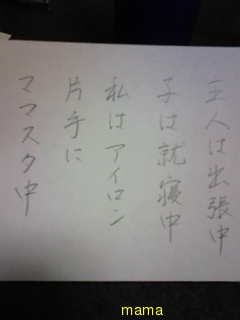 主人は出張中
子は就寝中
私はアイロン
片手に
ママスタ中
mama